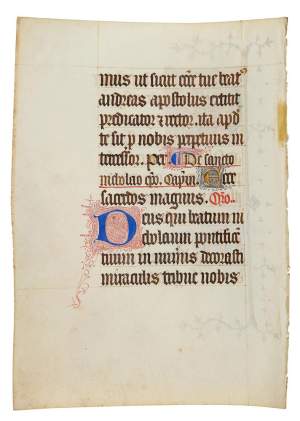 mus ut sicut ecce tue beat
andreas apostolus extitit
predicator et rector. ita apd
te sit p nobis perpetuus in
tercessor. Per. De sancto
nicolao Ecce
sacerdos magnus. Oro.
Deus qui beatum ni
cholaum pontific
tuum in numis decorasti
miraculis tribue nobis